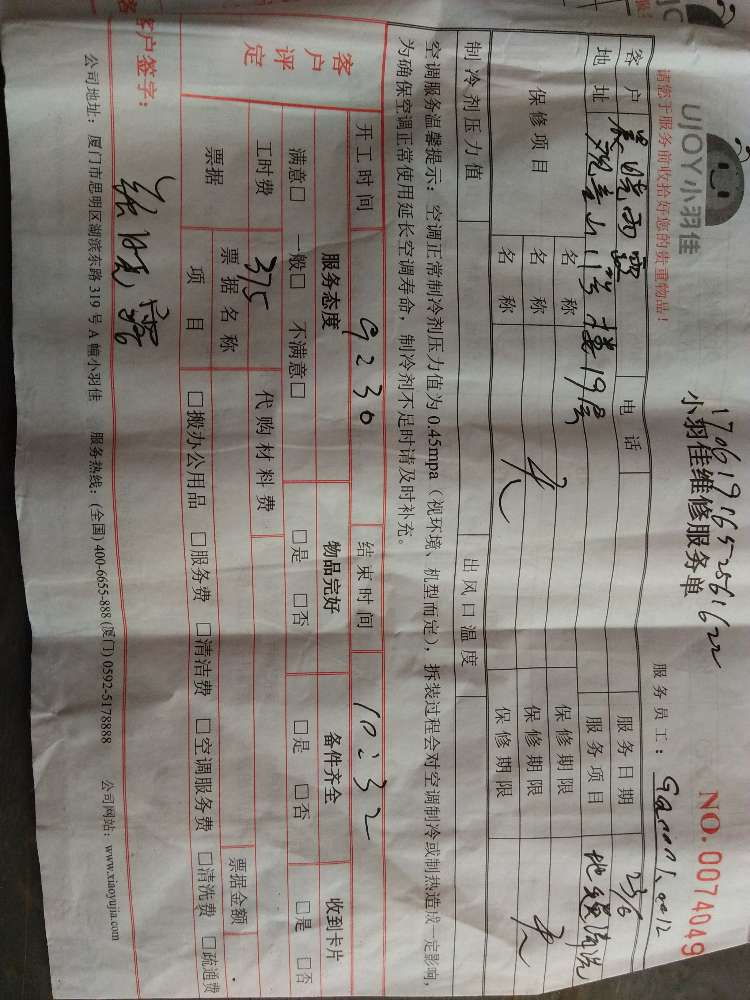 UJOY小羽佳
请您于服务前收拾好您的贵重物品！
小羽佳维修服务单
NO.0074049
服务员工：
客户 电话 服务日期 23/6
地址 观音山 19层 服务项目 地毯清洗
保修项目 名称 无 保修期限 无
名称 保修期限
名称 保修期限
制冷剂压力值 出风口温度
空调服务温馨提示：空调正常制冷剂压力值为0.45mpa（视环境、机型而定），拆装过程会对空调制冷或制热造成一定影响，
为确保空调正常使用延长空调寿命，制冷剂不足时请及时补充。
开工时间 9:30 结束时间 10:32
客户评定 服务态度 物品完好 备件齐全 收到卡片
满意□ 一般□ 不满意□ □是 □否 □是 □否 □是 □否
工时费 375 代购材料费
票据 票据名称 票据金额
项目 □搬办公用品 □服务费 □清洁费 □空调服务费 □清洗费 □疏通费
客户签字：
公司地址：厦门市思明区湖滨东路319号A幢小羽佳 服务热线：(全国) 400-6655-888 (厦门) 0592-5178888 公司网站：www.xiaoyujia.com